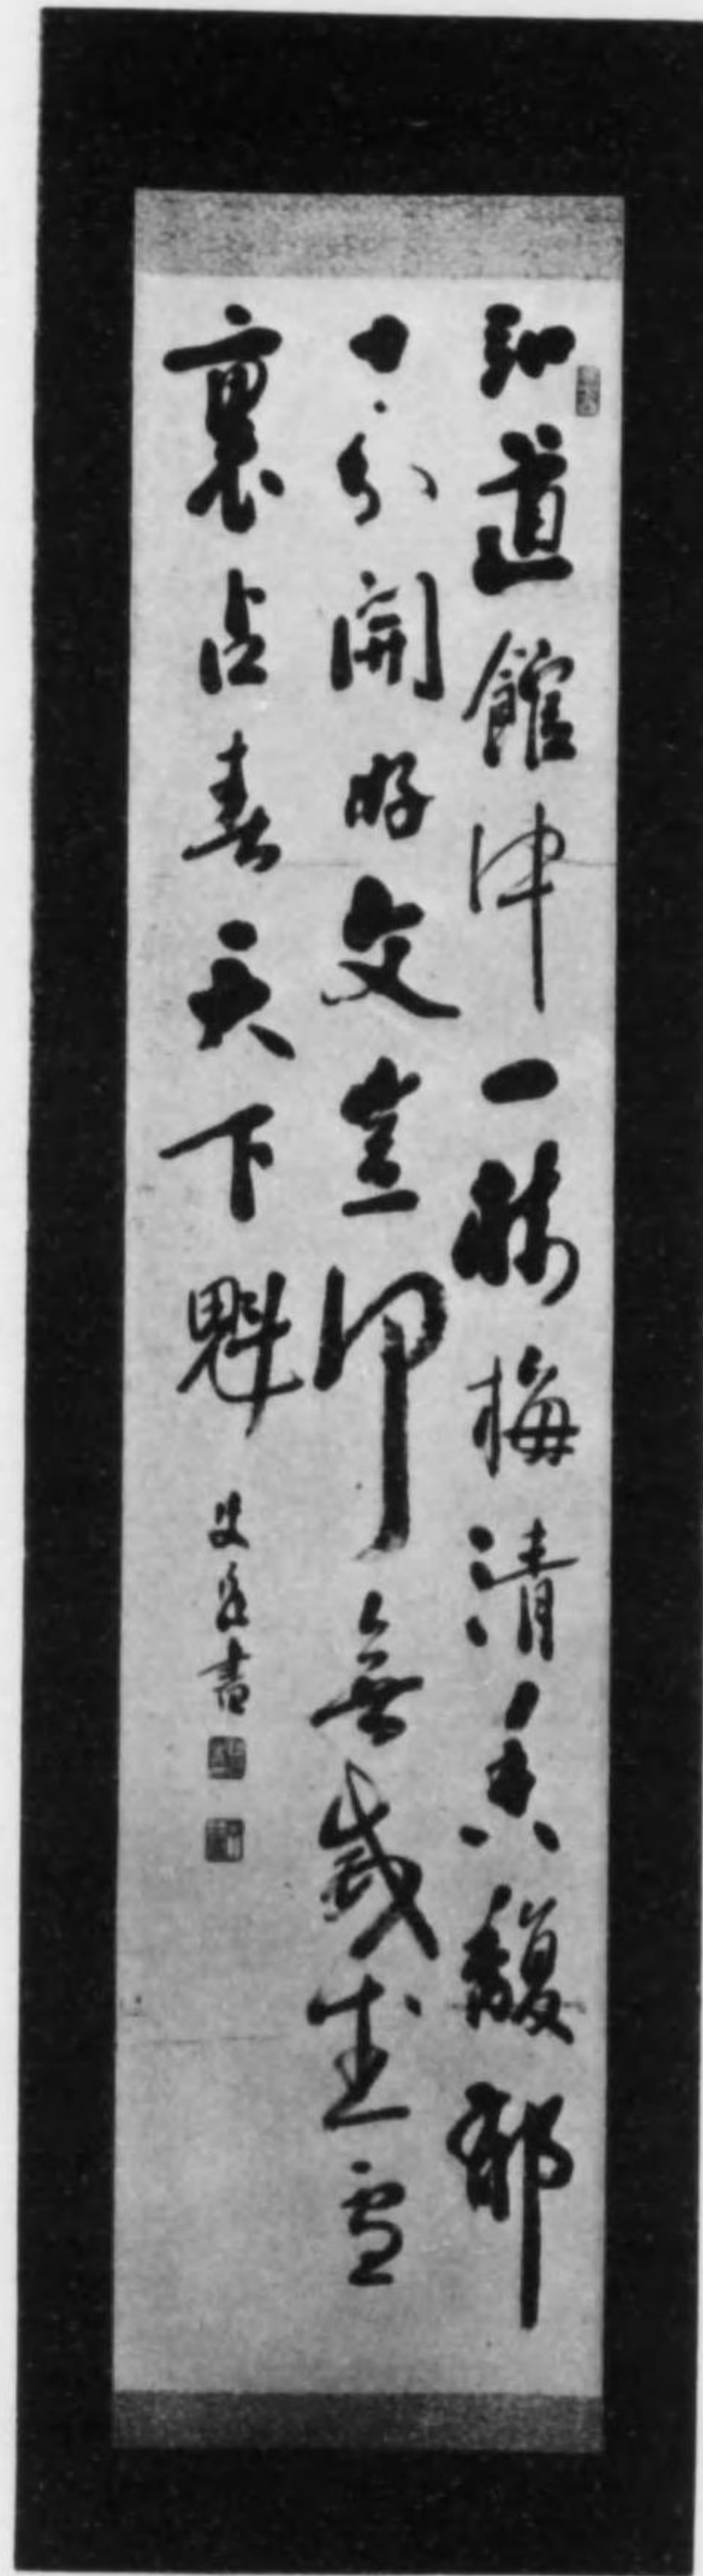 弘道館中一樹梅清香馥郁
十分開好文豈謂無威武雪
裏占春天下魁
書